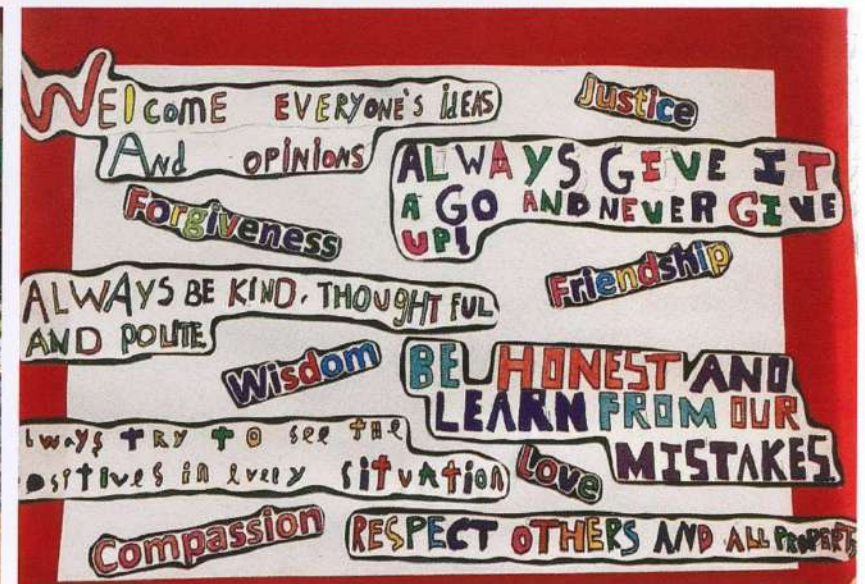 WElcomE EVERYONE'S idEAS
And OPINIONS
Justice
ALWAYS GIVE IT
A GO AND NEVER GIVE
UP!
Forgiveness
Friendship
ALWAYS BE KIND, THOUGHTFUL
AND POLITE
Wisdom
BE HONEST AND
LEARN FROM OUR
MISTAKES
lways tRy to see the
ositives in every situation
Love
Compassion
RESPECT OTHERS AND ALL PROPERT